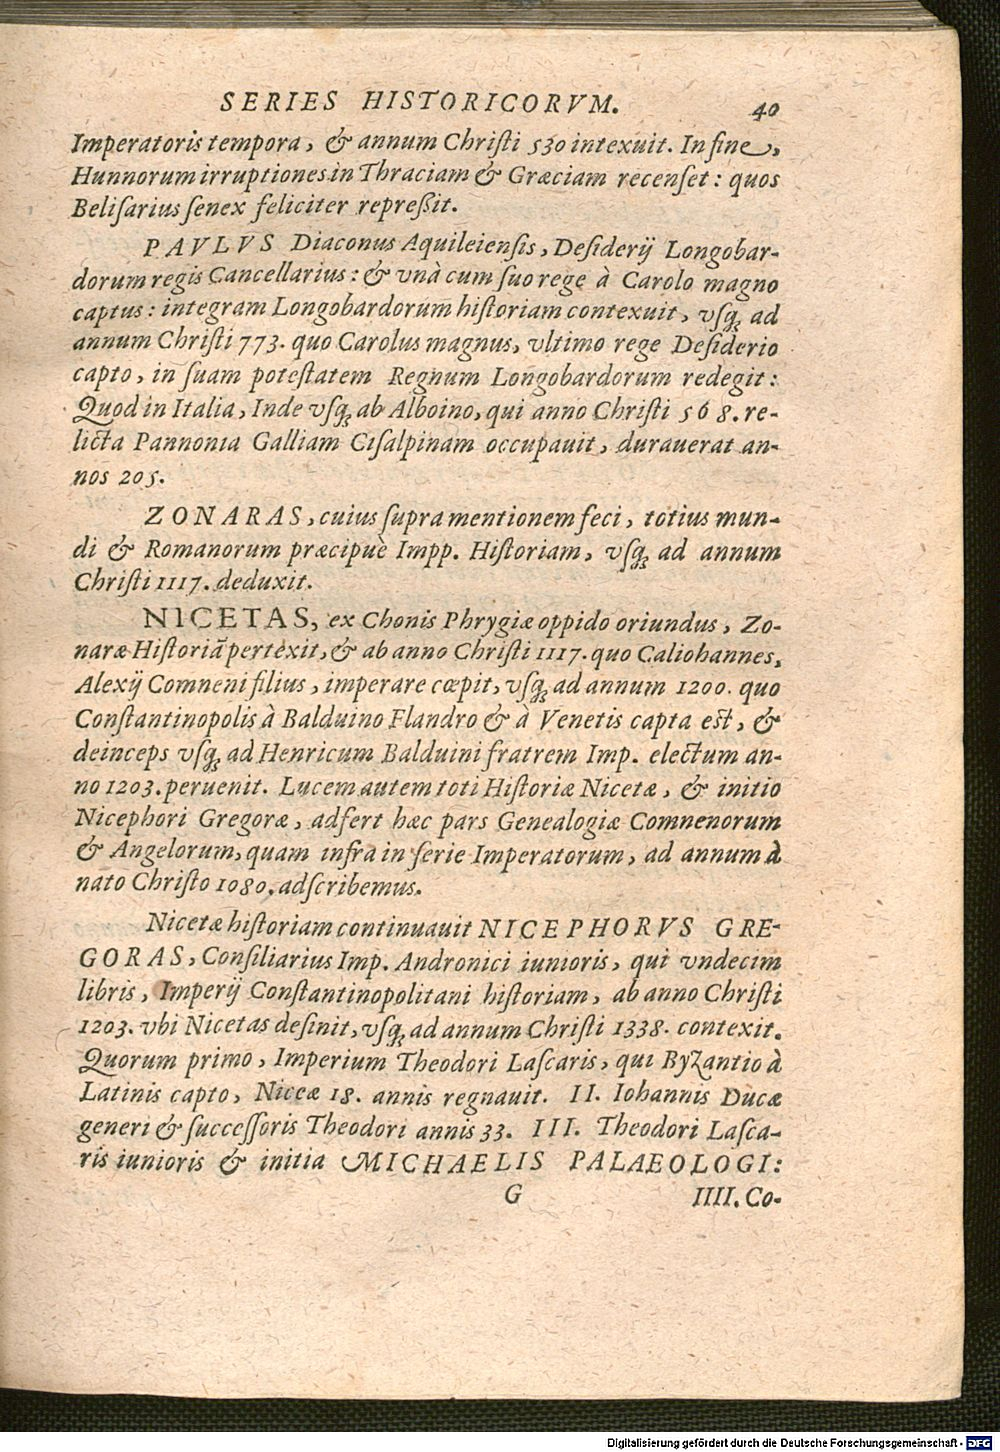 SERIES HISTORICORVM. 40
Imperatoris tempora, & annum Chriſti 530 intexuit. In fine,
Hunnorum irruptiones in Thraciam & Græciam recenſet: quos
Beliſarius ſenex feliciter repreßit.
PAVLVS Diaconus Aquileienſis, Deſiderij Longobar-
dorum regis Cancellarius: & vnà cum ſuo rege à Carolo magno
captus: integram Longobardorum hiſtoriam contexuit, vſq; ad
annum Chriſti 773. quo Carolus magnus, vltimo rege Deſiderio
capto, in ſuam poteſtatem Regnum Longobardorum redegit:
Quod in Italia, Inde vſq; ab Alboino, qui anno Chriſti 568. re-
licta Pannonia Galliam Ciſalpinam occupauit, durauerat an-
nos 205.
ZONARAS, cuius ſupra mentionem feci, totius mun-
di & Romanorum præcipuè Impp. Hiſtoriam, vſq; ad annum
Chriſti 1117. deduxit.
NICETAS, ex Chonis Phrygiæ oppido oriundus, Zo-
naræ Hiſtoriã pertexit, & ab anno Chriſti 1117. quo Caliohannes,
Alexij Comneni filius, imperare cœpit, vſq; ad annum 1200. quo
Conſtantinopolis à Balduino Flandro & à Venetis capta eſt, &
deinceps vſq; ad Henricum Balduini fratrem Imp. electum an-
no 1203. peruenit. Lucem autem toti Hiſtoriæ Nicetæ, & initio
Nicephori Gregoræ, adfert hæc pars Genealogiæ Comnenorum
& Angelorum, quam infra in ſerie Imperatorum, ad annum à
nato Chriſto 1080. adſcribemus.
Nicetæ hiſtoriam continuauit NICEPHORVS GRE-
GORAS, Conſiliarius Imp. Andronici iunioris, qui vndecim
libris, Imperij Conſtantinopolitani hiſtoriam, ab anno Chriſti
1203. vbi Nicetas deſinit, vſq; ad annum Chriſti 1338. contexit.
Quorum primo, Imperium Theodori Laſcaris, qui Byzantio à
Latinis capto, Niceæ 18. annis regnauit. II. Iohannis Ducæ
generi & ſucceſſoris Theodori annis 33. III. Theodori Laſca-
ris iunioris & initia MICHAELIS PALAEOLOGI:
G IIII. Co-
Digitalisierung gefördert durch die Deutsche Forschungsgemeinschaft - DFG